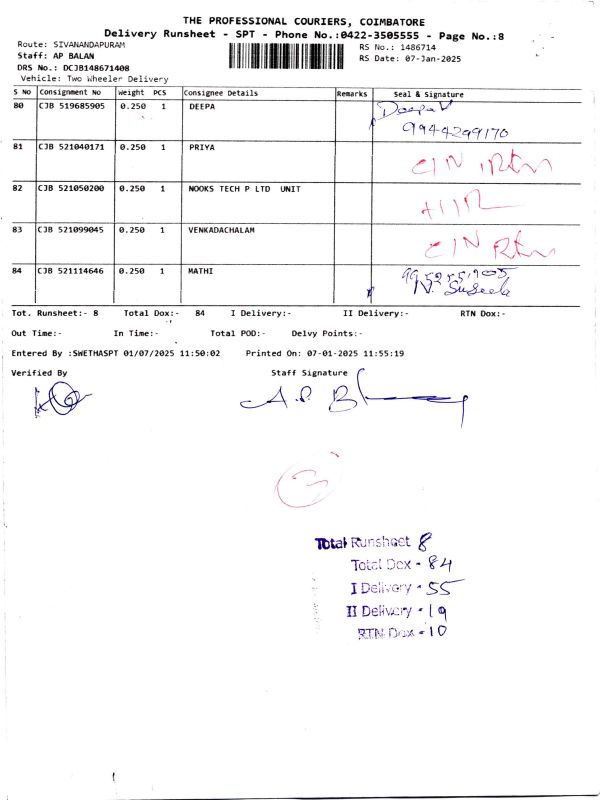 THE PROFESSIONAL COURIERS, COIMBATORE
Delivery Runsheet - SPT - Phone No.:0422-3505555 - Page No.:8
Route: SIVANANDAPURAM
RS No.: 1486714
Staff: AP BALAN
RS Date: 07-Jan-2025
DRS No.: DCJB148671408
Vehicle: Two Wheeler Delivery
S No Consignment No Weight PCS Consignee Details Remarks Seal & Signature
80 CJB 519685905 0.250 1 DEEPA Deepa V
9944299170
81 CJB 521040171 1 0.250 PRIYA CIN RTN
82 CJB 521050200 0.250 1 NOOKS TECH P LTD UNIT
83 CJB 521099045 0.250 1 VENKADACHALAM CIN RTN
84 CJB 521114646 0.250 1 MATHI
N. Suseela
Tot. Runsheet:- 8 Total Dox:- 84 I Delivery:- II Delivery:- RTN Dox:-
Out Time:- In Time:- Total POD:- Delvy Points:-
Entered By :SWETHASPT 01/07/2025 11:50:02 Printed On: 07-01-2025 11:55:19
Verified By Staff Signature
A.P. B
Total Runsheet 8
Total Dox - 84
I Delivery - 55
II Delivery - 19
RTN Dox - 10